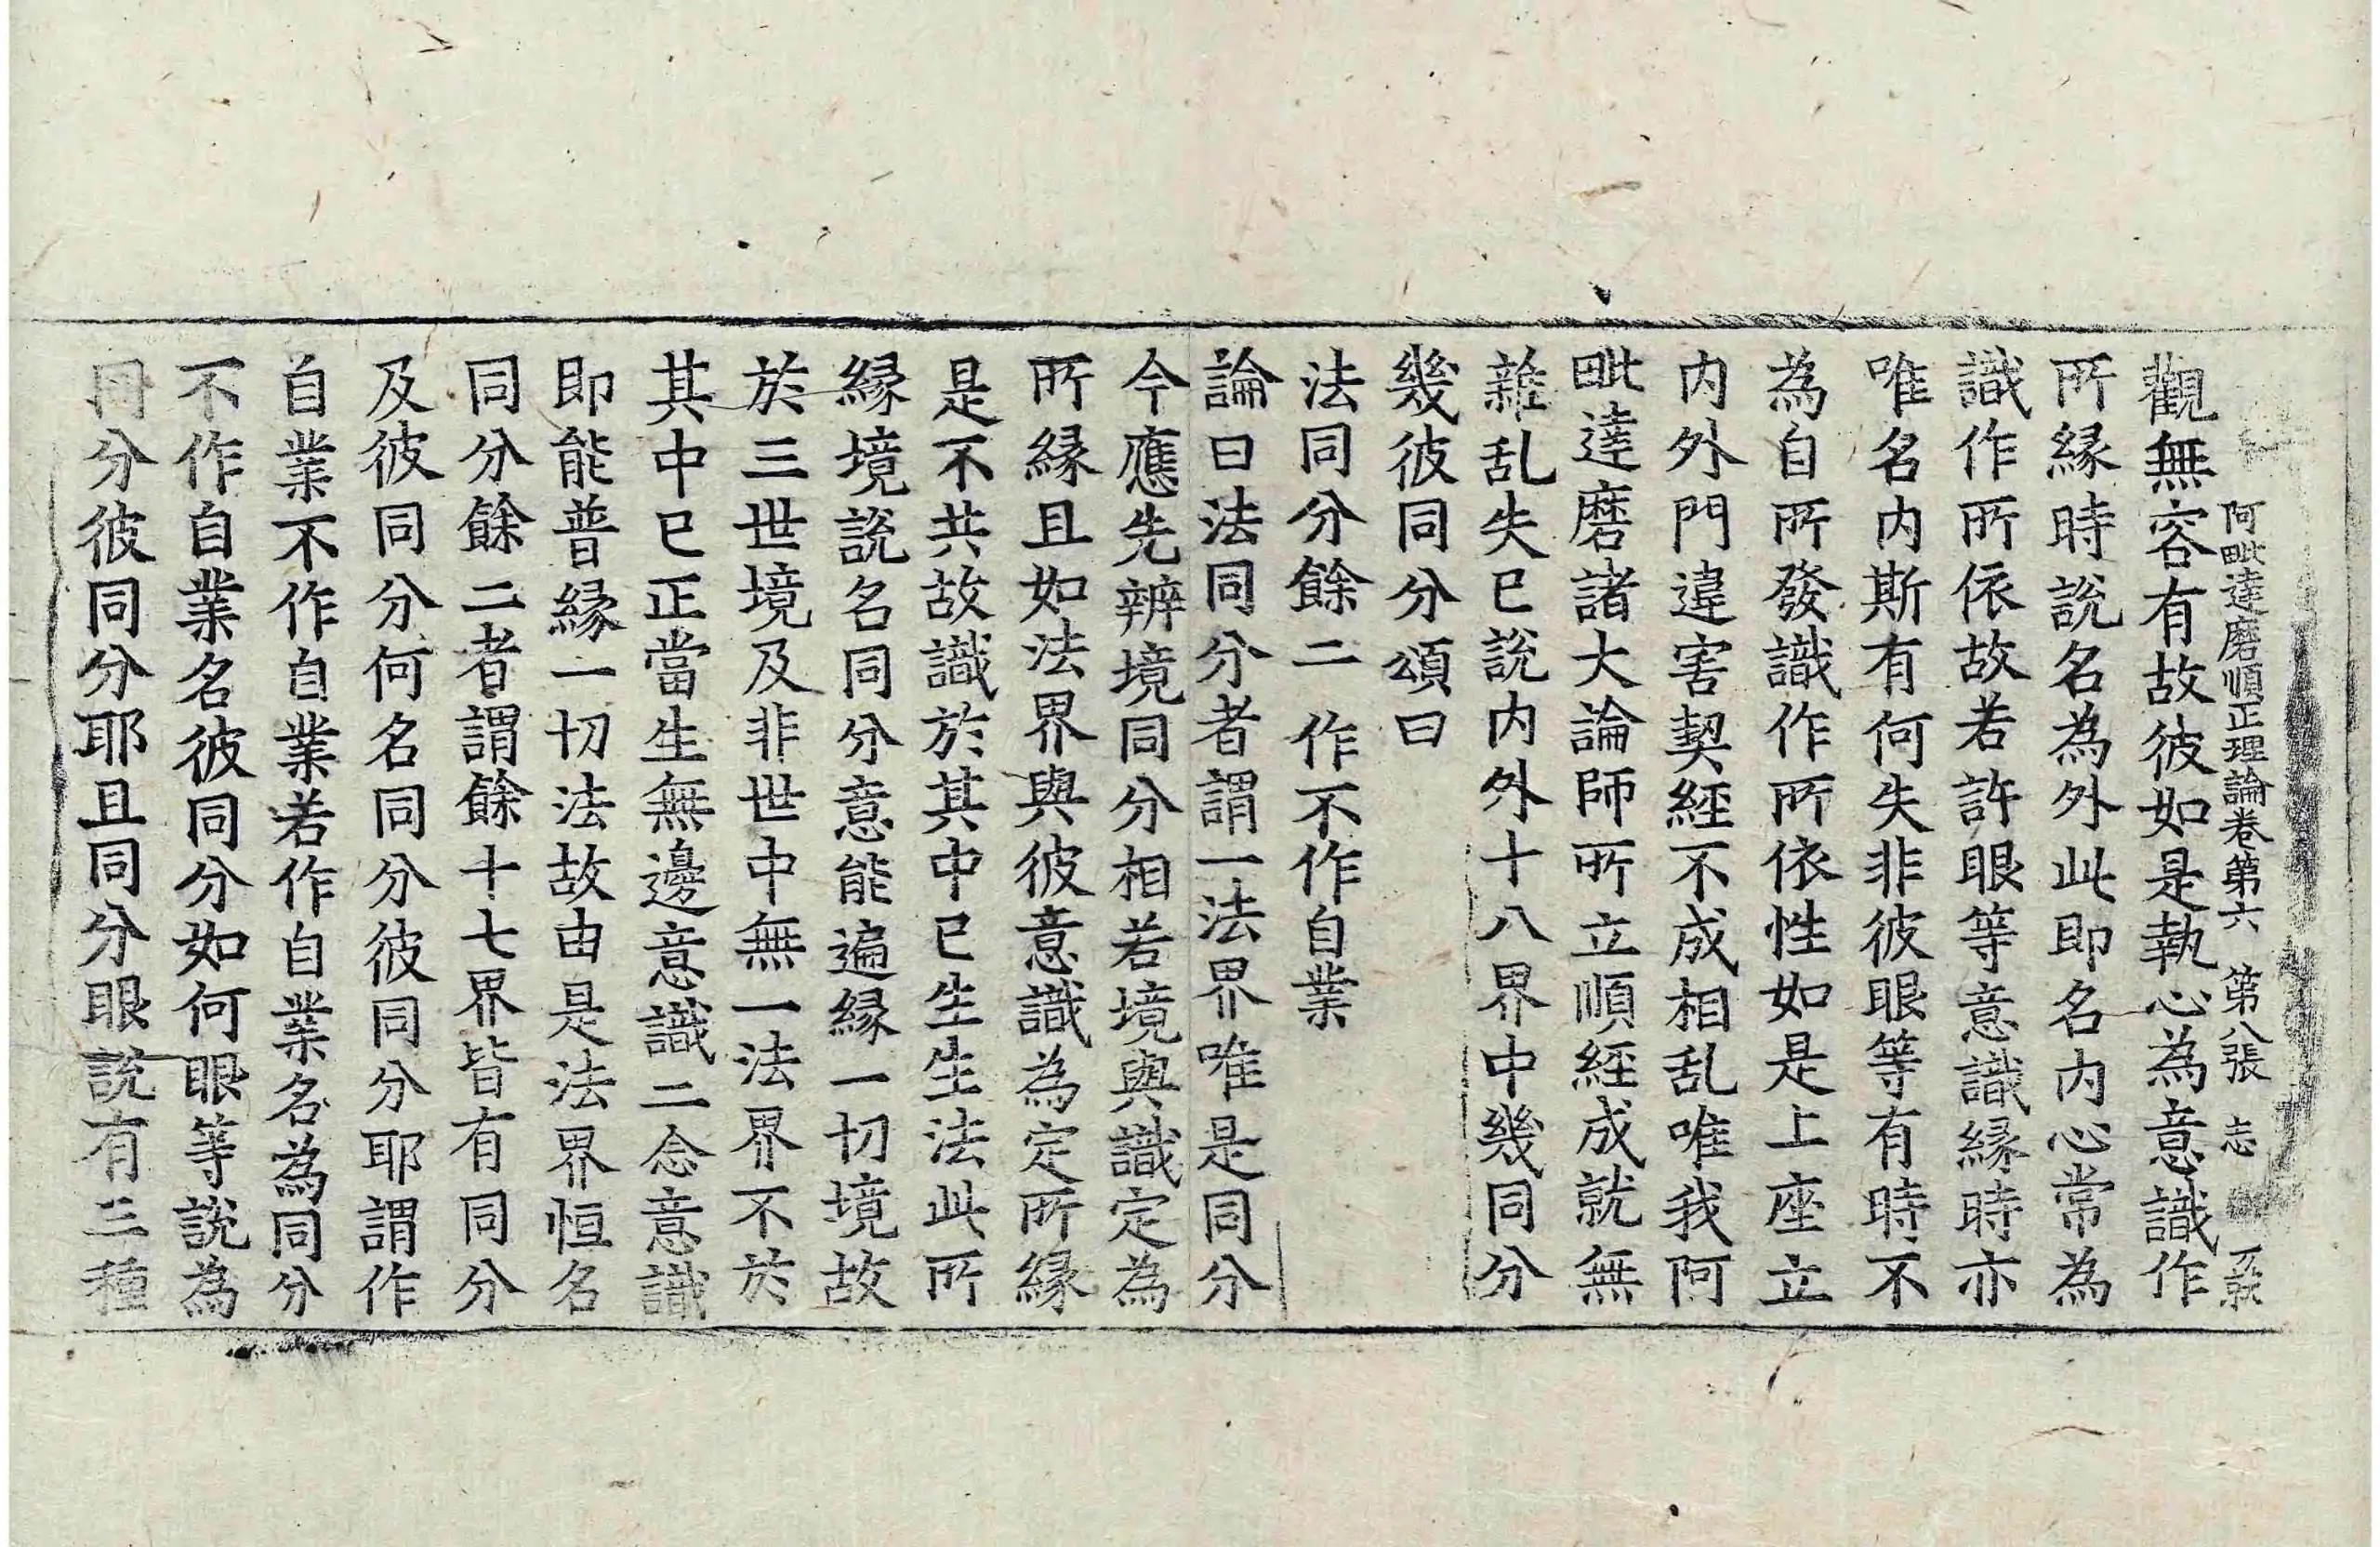 阿毗達磨順正理論卷第六　第八張　志
觀無容有故彼如是執心為意識作
所縁時說名為外此即名内心常為
識作所依故若許眼等意識縁時亦
唯名内斯有何失非彼眼等有時不
為自所發識作所依性如是上座立
内外門違害契經不成相乱唯我阿
毗達磨諸大論師所立順經成就無
雜乱失已說内外十八界中幾同分
幾彼同分頌曰
法同分餘二　作不作自業
論曰法同分者謂一法界唯是同分
今應先辨境同分相若境與識定為
所縁且如法界與彼意識為定所縁
是不共故識於其中已生生法此所
縁境說名同分意能遍縁一切境故
於三世境及非世中無一法界不於
其中已正當生無邊意識二念意識
即能普縁一切法故由是法界恒名
同分餘二者謂餘十七界皆有同分
及彼同分何名同分彼同分耶謂作
自業不作自業若作自業名為同分
不作自業名彼同分如何眼等說為
同分彼同分耶且同分眼說有三種